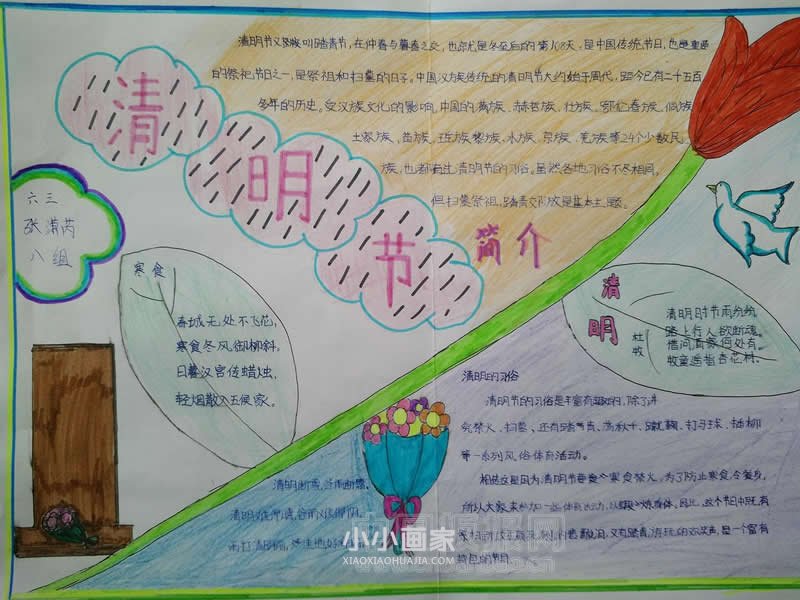 清明节
简介
清明节又叫踏青节，在仲春与暮春之交，也就是冬至后的第108天，是中国传统节日，也是重要
的祭祀节日之一，是祭祖和扫墓的日子。中国汉族传统的清明节大约始于周代，距今已有二千五百
多年的历史。受汉族文化的影响，中国的满族、赫哲族、壮族、鄂伦春族、侗族、
土家族、苗族、瑶族、黎族、水族、京族、羌族等24个少数民
族，也都有过清明节的习俗。虽然各地习俗不尽相同，
但扫墓祭祖，踏青郊游是基本主题。
六三
张满芮
八组
寒食
春城无处不飞花，
寒食冬风御柳斜。
日暮汉宫传蜡烛，
轻烟散入五侯家。
清明
杜牧
清明时节雨纷纷，
路上行人欲断魂。
借问酒家何处有，
牧童遥指杏花村。
清明的习俗
清明节的习俗是丰富有趣的，除了讲
究禁火、扫墓、还有踏青、荡秋千、蹴鞠、打马球、插柳
等一系列风俗体育活动。
相传这是因为清明节要寒食禁火，为了防止寒食冷餐伤身，
所以大家来参加一些体育活动，以锻炼身体。因此，这个节日中既有
悲酸泪，又有踏青游玩的欢笑声，是一个富有
特色的节日。
清明断雪，谷雨断霜。
小小画家
XIAOXIAOHUAJIA.COM